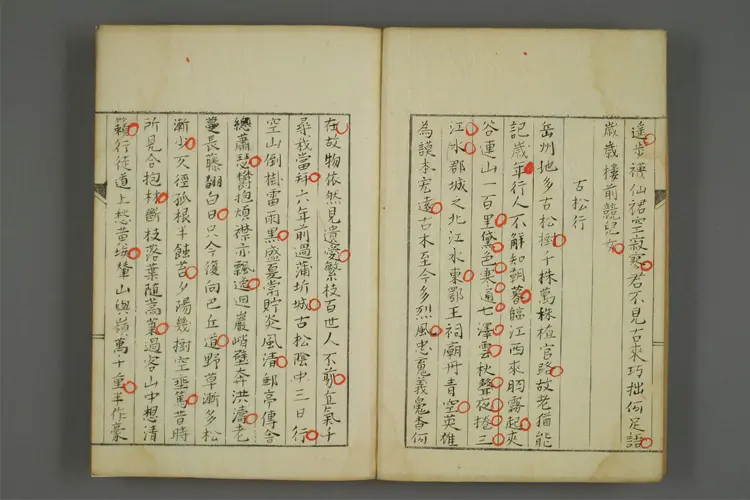 遙步襪仙裙空寂寞君不見古來巧拙何足語
歲歲樓前競兒女
古松行
岳州地多古松樹千株萬株植官路故老猶能
記歲年行人不解知朝暮臨江西來明霧起夾
谷連山一百里黛色寒通七澤雲秋聲夜捲三
江水郡城之北江水東鄂王祠廟丹青空英雄
為謨李宏遠古木至今多烈風忠冤義鬼杳何
在故物依然見遺愛繁枝百世人不剪直氣千
尋我當拜六年前過蒲圻城古松陰中三日行
空山倒樹雷雨黑盛夏常貯炎風清郵亭傳舍
總蕭瑟鬱抱煩襟亦飄逸迴巖峭壁奔洪濤老
蔓長藤翻白日只今復向巴丘道野草漸多松
漸少灭徑孤根半蝕苔夕陽幾樹空垂蔦昔時
所見合抱林斷枝落葉隨蒿萊過客山中想清
籟行徒道上愁黃埃輦山輿嶺萬牛重半作豪